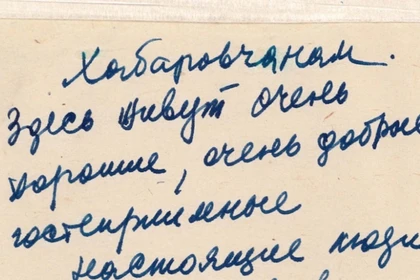 Хабаровчанам.
Здесь живут очень
хорошие, очень добрые
гостеприимные
настоящие люди